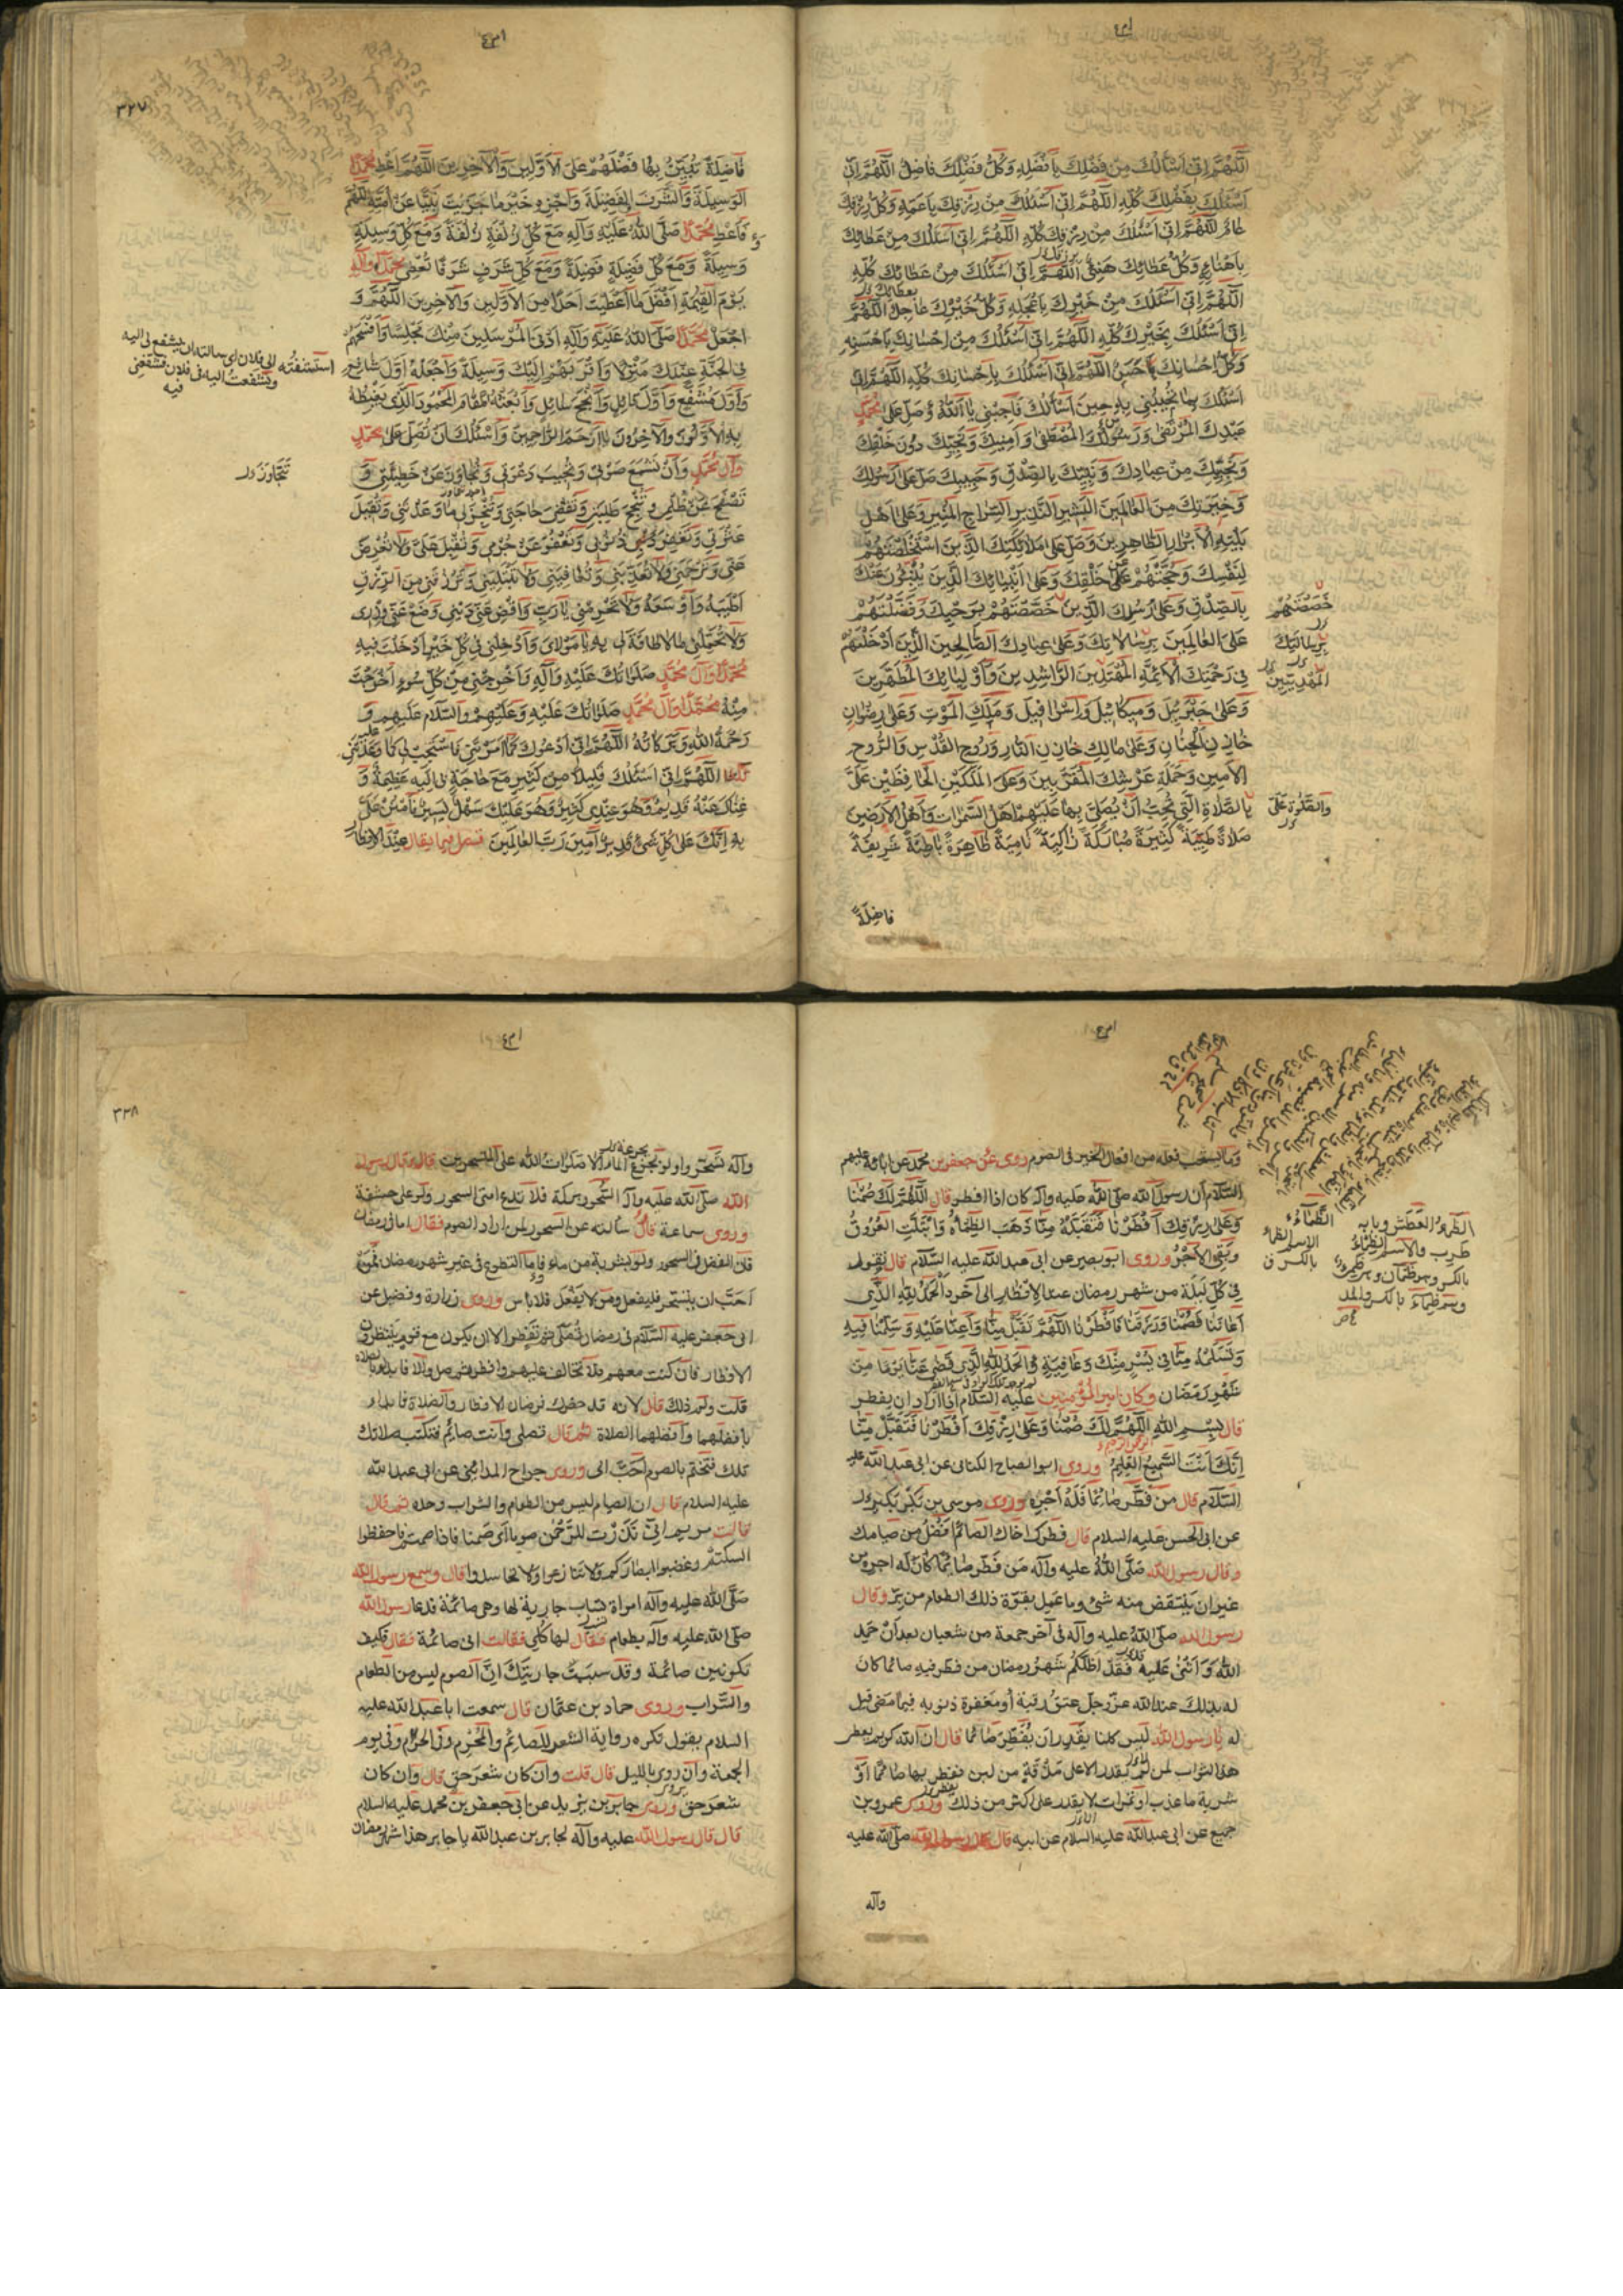 اللّهُمَّ اِنّى اَسْأَلُكَ مِنْ فَضْلِكَ بِاَفْضَلِهِ وَكُلُّ فَضْلِكَ فاضِلٌ اللّهُمَّ اِنّى
اَسْئَلُكَ بِفَضْلِكَ كُلِّهِ اللّهُمَّ اِنّى اَسْئَلُكَ مِنْ رِزْقِكَ بِاَعَمِّهِ وَكُلُّ رِزْقِكَ
عامٌّ اللّهُمَّ اِنّى اَسْئَلُكَ مِنْ رِزْقِكَ كُلِّهِ اللّهُمَّ اِنّى اَسْئَلُكَ مِنْ عَطائِكَ
بِاَهْنَاءِهِ وَكُلُّ عَطائِكَ هَنِئٌ اللّهُمَّ اِنّى اَسْئَلُكَ مِنْ عَطائِكَ كُلِّهِ
اللّهُمَّ اِنّى اَسْئَلُكَ مِنْ خَيْرِكَ بِاَعْجَلِهِ وَكُلُّ خَيْرِكَ عاجِلٌ اللّهُمَّ
اِنّى اَسْئَلُكَ بِخَيْرِكَ كُلِّهِ اللّهُمَّ اِنّى اَسْئَلُكَ مِنْ اِحْسانِكَ بِاَحْسَنِهِ
وَكُلُّ اِحْسانِكَ حَسَنٌ اللّهُمَّ اِنّى اَسْئَلُكَ بِاِحْسانِكَ كُلِّهِ اللّهُمَّ اِنّى
اَسْئَلُكَ بِما تُجيبُنى بِهِ حينَ اَسْأَلُكَ فَاَجِبْنى يا اَللهُ وَصَلِّ عَلى مُحَمَّدٍ
عَبْدِكَ الْمُرْتَضى وَرَسُولِكَ الْمُصْطَفى وَاَمينِكَ وَنَجِيِّكَ دُونَ خَلْقِكَ
وَنَجيبِكَ مِنْ عِبادِكَ وَنَبِيِّكَ بِالصِّدْقِ وَحَبيبِكَ صَلِّ عَلى رَسُولِكَ
وَخِيَرَتِكَ مِنَ الْعالَمينَ الْبَشيرِ النَّذيرِ السِّراجِ الْمُنيرِ وَعَلى اَهْلِ
بَيْتِهِ الْاَبْرارِ الطّاهِرينَ وَصَلِّ عَلى مَلائِكَتِكَ الَّذينَ اسْتَخْلَصْتَهُمْ
لِنَفْسِكَ وَحَجَبْتَهُمْ عَنْ خَلْقِكَ وَعَلى اَنْبِيائِكَ الَّذينَ يُنْبِئُونَ عَنْكَ
بِالصِّدْقِ وَعَلى رُسُلِكَ الَّذينَ خَصَّصْتَهُمْ بِوَحْيِكَ وَفَضَّلْتَهُمْ
عَلَى الْعالَمينَ بِرِسالاتِكَ وَعَلى عِبادِكَ الصّالِحينَ الَّذينَ اَدْخَلْتَهُمْ
فى رَحْمَتِكَ الْاَئِمَّةِ الْمُهْتَدينَ الرّاشِدينَ وَاَوْلِيائِكَ الْمُطَهَّرينَ
وَعَلى جَبْرَئيلَ وَميكائيلَ وَاِسْرافيلَ وَمَلَكِ الْمَوْتِ وَعَلى رِضْوانَ
خازِنِ الْجِنانِ وَعَلى مالِكٍ خازِنِ النّارِ وَرُوحِ الْقُدُسِ وَالرُّوحِ
الْاَمينِ وَحَمَلَةِ عَرْشِكَ الْمُقَرَّبينَ وَعَلَى الْمَلَكَيْنِ الْحافِظَيْنِ عَلَىَّ
بِالصَّلاةِ الَّتى تُحِبُّ اَنْ يُصَلِّىَ بِها عَلَيْهِمْ اَهْلُ السَّمواتِ وَاَهْلُ الْاَرَضينَ
صَلاةً طَيِّبَةً كَثيرَةً مُبارَكَةً زاكِيَةً نامِيَةً ظاهِرَةً باطِنَةً شَريفَةً
فاضِلَةً
خَصَصْتَهُمْ
بِرِسالَتِكَ
الْمَهْدِيّينَ
وَالصَّلوةِ عَلى
٣٢٧
فاضِلَةً تُبَيِّنُ بِها فَضْلَهُمْ عَلَى الْاَوَّلينَ وَالْآخِرينَ اللّهُمَّ اَعْطِ مُحَمَّداً
الْوَسيلَةَ وَالشَّرَفَ وَالْفَضيلَةَ وَاَجْزِهِ خَيْرَ ما جَزَيْتَ نَبِيّاً عَنْ اُمَّتِهِ اللّهُمَّ
فَاَعْطِ مُحَمَّداً صَلَّى اللهُ عَلَيْهِ وَآلِهِ مَعَ كُلِّ زُلْفَةٍ زُلْفَةً وَمَعَ كُلِّ وَسيلَةٍ
وَسيلَةً وَمَعَ كُلِّ فَضيلَةٍ فَضيلَةً وَمَعَ كُلِّ شَرَفٍ شَرَفاً تُعْطى مُحَمَّداً وَآلِهِ
يَوْمَ الْقِيمَةِ اَفْضَلَ ما اَعْطَيْتَ اَحَداً مِنَ الْاَوَّلينَ وَالْآخِرينَ اللّهُمَّ وَ
اجْعَلْ مُحَمَّداً صَلَّى اللهُ عَلَيْهِ وَآلِهِ اَدْنَى الْمُرْسَلينَ مِنْكَ مَجْلِساً وَاَفْسَحَهُمْ
فِى الْجَنَّةِ عِنْدَكَ مَنْزِلاً وَاَقْرَبَهُمْ اِلَيْكَ وَسيلَةً وَاجْعَلْهُ اَوَّلَ شافِعٍ
وَاَوَّلَ مُشَفَّعٍ وَاَوَّلَ قائِلٍ وَاَنْجَحَ سائِلٍ وَابْعَثْهُ الْمَقامَ الْمَحْمُودَ الَّذى يَغْبِطُهُ
بِهِ الْاَوَّلُونَ وَالْآخِرُونَ يا اَرْحَمَ الرّاحِمينَ وَاَسْئَلُكَ اَنْ تُصَلِّىَ عَلى مُحَمَّدٍ
وَآلِ مُحَمَّدٍ وَاَنْ تَسْمَعَ صَوْتى وَتُجيبَ دَعْوَتى وَتُجاوِزَ عَنْ خَطيئَتى وَ
تَصْفَحَ عَنْ ظُلْمى وَتُنْجِحَ طَلِبَتى وَتَقْضِىَ حاجَتى وَتُنْجِزَ لى ما وَعَدْتَنى وَتُقيلَ
عَثْرَتى وَتَغْفِرَ ذُنُوبى وَتَعْفُوَ عَنْ جُرْمى وَتُقْبِلَ عَلَىَّ وَلا تُعْرِضَ
عَنّى وَتَرْحَمَنى وَلا تُعَذِّبَنى وَتُعافِيَنى وَلا تَبْتَلِيَنى وَتَرْزُقَنى مِنَ الرِّزْقِ
اَطْيَبَهُ وَاَوْسَعَهُ وَلا تَحْرِمْنى يا رَبِّ وَاقْضِ عَنّى دَيْنى وَضَعْ عَنّى وِزْرى
وَلا تُحَمِّلْنى ما لا طاقَةَ لى بِهِ يا مَوْلاىَ وَاَدْخِلْنى فى كُلِّ خَيْرٍ اَدْخَلْتَ فيهِ
مُحَمَّداً وَآلَ مُحَمَّدٍ صَلَواتُكَ عَلَيْهِ وَآلِهِ وَاَخْرِجْنى مِنْ كُلِّ سُوءٍ اَخْرَجْتَ
مِنْهُ مُحَمَّداً وَآلَ مُحَمَّدٍ صَلَواتُكَ عَلَيْهِ وَعَلَيْهِمْ وَالسَّلامُ عَلَيْهِمْ وَ
رَحْمَةُ اللهِ وَبَرَكاتُهُ اللّهُمَّ اِنّى اَدْعُوكَ كَما اَمَرْتَنى فَاسْتَجِبْ لى كَما وَعَدْتَنى
اللّهُمَّ اِنّى اَسْئَلُكَ قَليلاً مِنْ كَثيرٍ مَعَ حاجَةٍ بى اِلَيْهِ عَظيمَةٍ وَ
غِناكَ عَنْهُ قَديمٌ وَهُوَ عِنْدى كَثيرٌ وَهُوَ عَلَيْكَ سَهْلٌ يَسيرٌ فَامْنُنْ عَلَىَّ
بِهِ اِنَّكَ عَلى كُلِّ شَىْءٍ قَديرٌ آمينَ رَبَّ الْعالَمينَ فصل فيما يقال عِنْدَ الافطار
استشفعته الى فلان اى سالته ان يشفع لى اليه
وتشفعت اليه فى فلان فشفعنى
فيه
تَتَجاوَزَ
وما يستحب فعله من افعال الخير فى الصوم روى عن جعفر بن محمد عن ابائه عليهم
السَّلام ان رسول الله صلّى الله عليه وآله كان اذا افطر قال اللّهُمَّ لَكَ صُمْنا
وَعَلى رِزْقِكَ اَفْطَرْنا فَتَقَبَّلْهُ مِنّا ذَهَبَ الظَّمَأُ وَابْتَلَّتِ الْعُرُوقُ
وَبَقِىَ الْاَجْرُ وروى ابو بصير عن ابى عبد الله عليه السَّلام قال يقول
فى كُلِّ لَيْلَة من شهر رمضان عند الافطار الى آخره اَلْحَمْدُ لِلّهِ الَّذى
اَعانَنا فَصُمْنا وَرَزَقَنا فَاَفْطَرْنا اللّهُمَّ تَقَبَّلْ مِنّا وَاَعِنّا عَلَيْهِ وَسَلِّمْنا فيهِ
وَتَسَلَّمْهُ مِنّا فى يُسْرٍ مِنْكَ وَعافِيَةٍ وَالْحَمْدُ لِلّهِ الَّذى قَضى عَنّا يَوْماً مِنْ
شَهْرِ رَمَضان وكان امير المؤمنين عليه السَّلام اذا اراد ان يفطر
قال بِسْمِ اللهِ اللّهُمَّ لَكَ صُمْنا وَعَلى رِزْقِكَ اَفْطَرْنا فَتَقَبَّلْ مِنّا
اِنَّكَ اَنْتَ السَّميعُ الْعَليمُ وروى ابو الصباح الكنانى عن ابى عبد الله عليه
السَّلام قال مَنْ فَطَّرَ صائِماً فَلَهُ اَجْرُهُ وروى موسى بن بكر
عن ابى الحسن عليه السلام قال فطرك اخاك الصائم اَفْضَلُ من صيامك
وقال رسول الله صَلَّى اللهُ عليه وآله مَن فَطَّرَ صائِماً كانَ لَه اجره من
غير ان يَنْتَقِض منه شئ وما عمل بقوّة ذلك الطعام من برّ وقال
رسول الله صَلّى الله عليه وآله فى آخر جمعة من شعبان بعد اَن حَمِدَ
الله وَاَثْنى عَلَيه فَقَد اَظَلَّكُم شَهرُ رَمضان من فطر فيه صائما كان
له بذلك عند الله عزّ وجلّ عتق رقبة أو مغفرة ذنوبه فيما مضى قيل
له يا رسول الله ليس كلنا يقدر ان يُفَطِّرَ صائما قال ان الله كريم يعطى
هذا الثواب لمن لم يقدر الا على مَذْقَةٍ من لبن ففطر بها صائمًا اَوْ
شربة ماء عذب او تمرات لا يقدر على اكثر من ذلك وروى عمرو بن
جميع عن ابى عبد الله عليه السلام عن ابيه قال قال رسول الله صلّى الله عليه
وآله
الظَّماءُ العَطَش وبابه
طَرِب والاسم الظِّماءُ
بالكسر وهو ظَمْآن وهى ظَمْأى
وهم ظِماء بالكسر والمد
٣٣٨
وآله تَسَحَّروا ولو بجرع الماء الا صلوات الله على المتسحرين قال وقال رسول
الله صلّى الله عليه وآله السُّحور بركة فلا تدع امتى السحور ولو على حشفة
وروى سماعة قال سألته عن السحور لمن اراد الصوم فقال اما فى رمضان
فان الفضل فى السحور ولو بشربة من ماء فاما التطوع فى غير شهر رمضان فمن
اَحَبَّ ان يتسحر فليفعل ومن لا يفعل فلا باس وروى زرارة وفضيل عن
ابى جعفر عليه السَّلام فى رمضان تُصلّى ثم تفطر الا ان يكون مع قوم ينتظرون
الافطار فان كنت معهم فلا تخالف عليهم وافطر ثم صل والا فابدء بالصلاة
قلت ولم ذلك قال لانه قد حضرك فرضان الافطار والصلاة فابداء
بافضلهما وافضلهما الصلاة ثم قال تصلى وأنت صائم فتكتب صلاتك
تلك فتختم بالصوم احَبّ الى وروى جراح المداينى عن ابى عبد الله
عليه السلام قال ان الصيام ليس من الطعام والشراب وحده ثم قال
قالت مريم انّى نَذَرْت للرَّحْمن صوما اى صَمتا فاذا صمتم فاحفظوا
السنتكم وغضوا ابصاركم ولا تنازعوا ولا تحاسدوا قال وسمع رسول الله
صَلَّى الله عليه وآله امراة تساب جارية لها وهى صائمة فدعا رسول الله
صلّى الله عليه وآله بطعام فقال لها كُلى فقالت انى صائمة فقال كيف
تكونين صائمة وقد سببت جاريتك انّ الصوم ليس من الطعام
والشَّراب وروى حماد بن عثمان قال سمعت ابا عبد الله عليه
السلام يقول تكره رواية الشعر للصائم والمحرم وفى الحرم وفى يوم
الجمعة وان روى بالليل قال قلت وان كان شعر حق قال وان كان
شعر حق وروى جابر بن يزيد عن ابى جعفر بن محمد عليه السلام
قال قال رسول الله عليه وآله لجابر بن عبد الله يا جابر هذا شهر رمضان